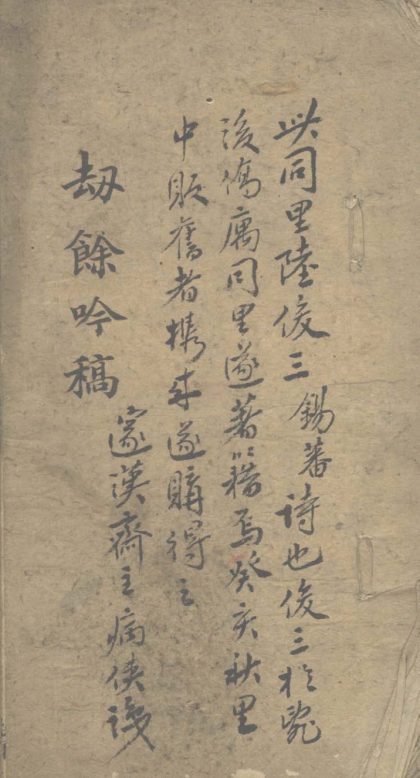 此同里陸俊三錫蕃詩也俊三於
後僑寓同里遂著以籍焉癸亥秋里
中販舊者携來遂購得之
邃漢齋主病俠識
刼餘吟稿